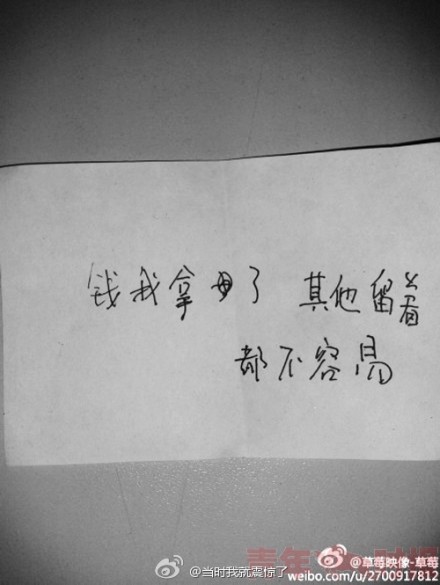 钱我拿了 其他留着
都不容易
青年
@当时我就震惊了
@草莓映像-草莓
weibo.com/u/2700917812